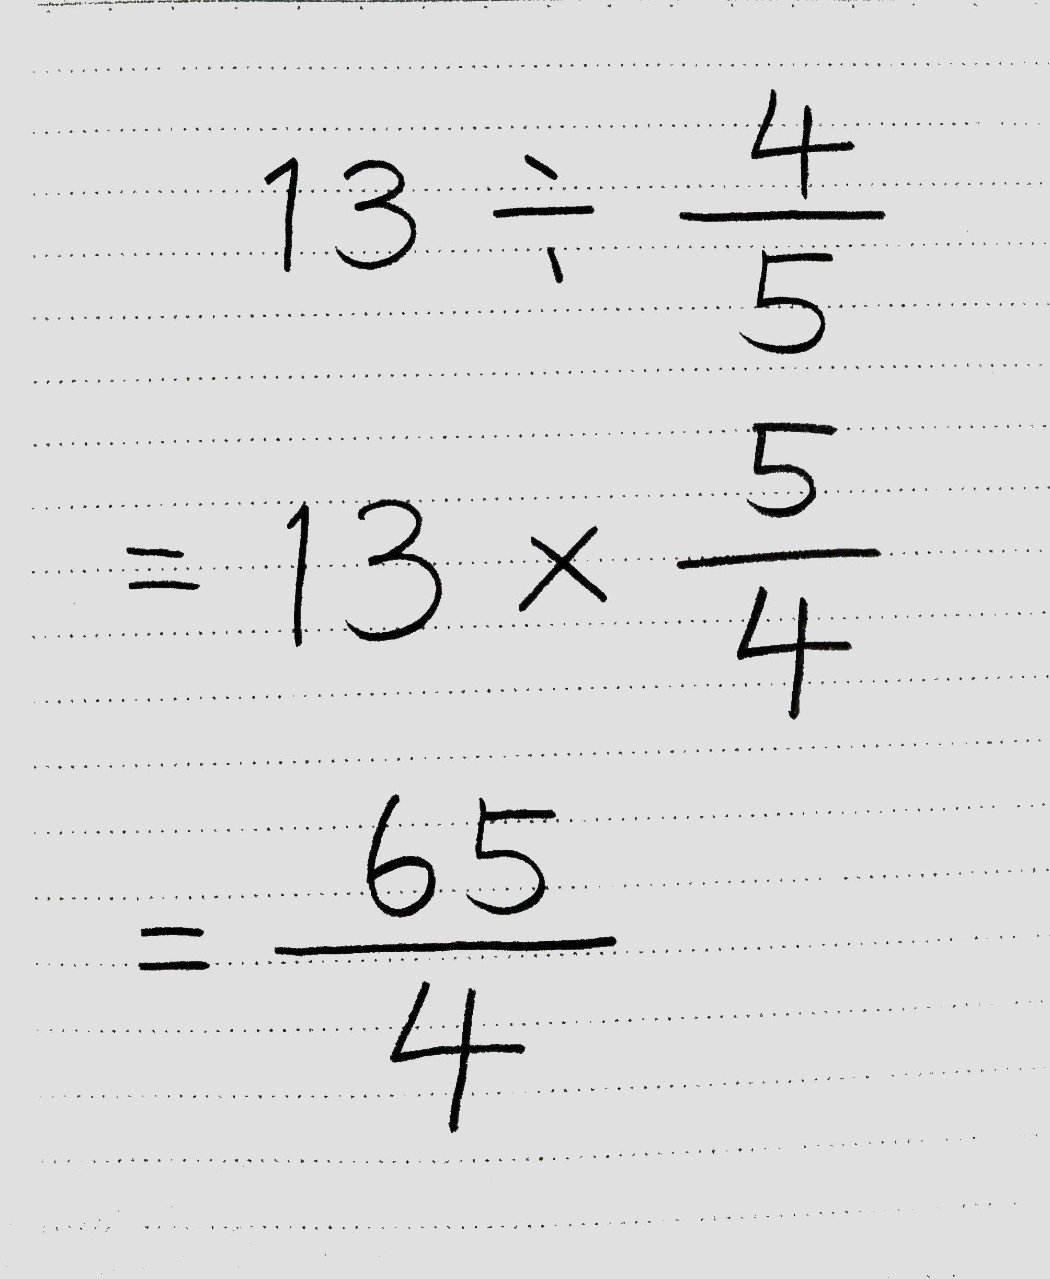 13 ÷ 4/5
= 13 × 5/4
= 65/4